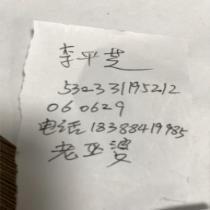 李平芝
53233119521 2
060629
电话18388419985
老巫婆